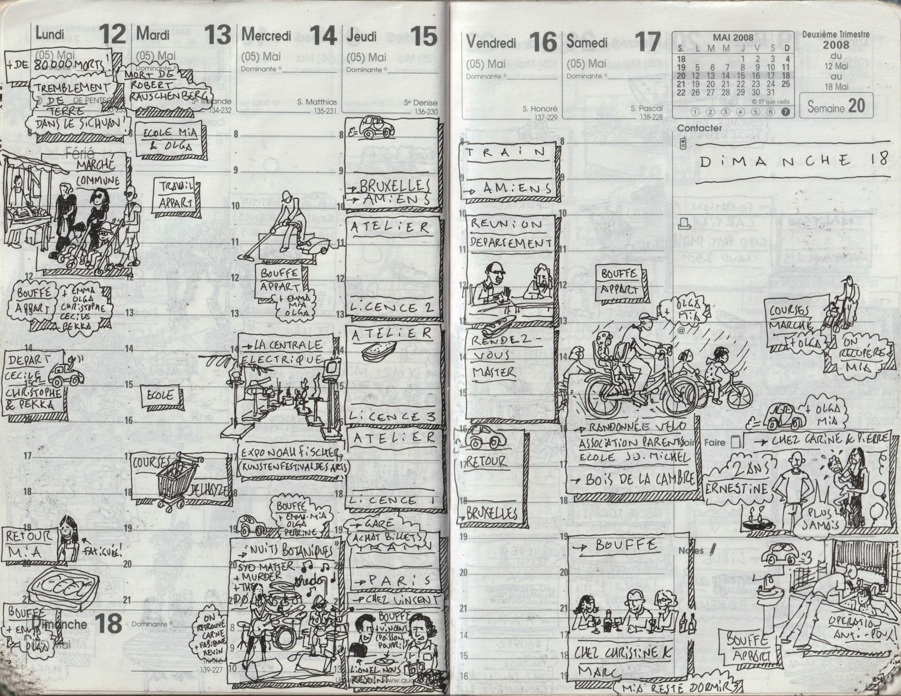 Lundi 12
(05) Mai
+ DE 80 000 MORTS!
TREMBLEMENT
DE
TERRE
DANS LE SICHUAN
Férié
MARCHÉ
COMMUNE
BOUFFE
APPART
+ EMMA
OLGA
CHRISTOPHE
CECILE
PEKKA
DEPART
CECILE
CHRISTOPHE
& PEKKA
RETOUR
MIA
FATIGUÉE!
BOUFFE
+ EMMA
OLGA
Dimanche 18
Mardi 13
(05) Mai
Dominante
MORT DE
ROBERT
RAUSCHENBERG
134-232
ECOLE MIA
& OLGA
TRAVAIL
APPART
ECOLE
COURSES
DELHAIZE
Dominante
139-227
Mercredi 14
(05) Mai
Dominante
S. Matthias
135-231
BOUFFE
APPART
+ EMMA
MIA
OLGA
→ LA CENTRALE
ELECTRIQUE
EXPO NOAH FISCHER
KUNSTENFESTIVALDESARTS
BOUFFE
+ EMMA-MIA
OLGA
PERRINE
→ NUITS BOTANIQUES
SYD MATTER
+ MURDER
+ THE
DØ
the dø
Jeudi 15
(05) Mai
Dominante
Ste Denise
136-230
→ BRUXELLES
→ AMIENS
ATELIER
LICENCE 2
ATELIER
LICENCE 3
ATELIER
LICENCE 1
→ GARE
ACHAT BILLETS
→ PARIS
+ CHEZ VINCENT
BOUFFE
LIONEL NOUS
REJOINT
Vendredi 16
(05) Mai
Dominante
S. Honoré
137-229
TRAIN
→ AMIENS
REUNION
DEPARTEMENT
RENDEZ-
VOUS
MASTER
RETOUR
BRUXELLES
Samedi 17
(05) Mai
Dominante
S. Pascal
138-228
BOUFFE
APPART
+ OLGA
MIA
→ RANDONNÉE VELO
ASSOCIATION PARENTS
ECOLE JJ. MICHEL
→ BOIS DE LA CAMBRE
→ BOUFFE
CHEZ CHRISTINE &
MARC
MIA RESTE DORMIR
MAI 2008
S. L M M J V S D
18 1 2 3 4
19 5 6 7 8 9 10 11
20 12 13 14 15 16 17 18
21 19 20 21 22 23 24 25
22 26 27 28 29 30 31
Deuxième Trimestre
2008
du
12 Mai
au
18 Mai
Semaine 20
Contacter
DIMANCHE 18
COURSES
MARCHÉ
+ OLGA
ON
RECUPÈRE
MIA
+ OLGA
MIA
Faire
→ CHEZ CARINE & PIERRE
2 ANS
ERNESTINE
PLUS
JAMAIS
Notes
BOUFFE
APPART
OPERATION
ANTI-POUX